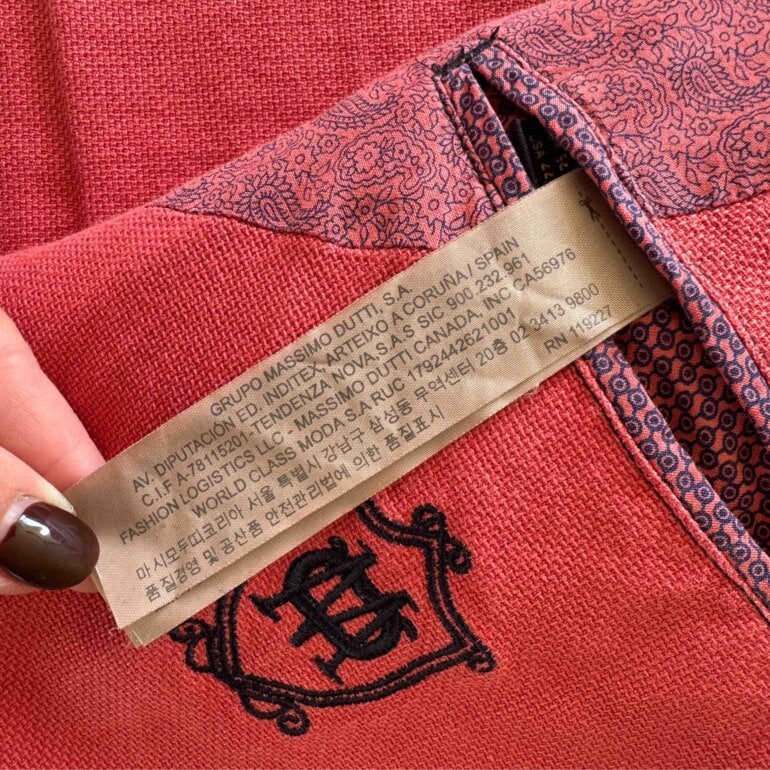 GRUPO MASSIMO DUTTI, S.A.
AV. DIPUTACIÓN ED. INDITEX, ARTEIXO A CORUÑA / SPAIN
C.I.F A-78115201-TENDENZA NOVA, S.A.S SIC 900 232 961
FASHION LOGISTICS LLC - MASSIMO DUTTI CANADA, INC CA56976
WORLD CLASS MODA S.A RUC 1792442621001
마시모두띠코리아 서울 특별시 강남구 삼성동 무역센터 20층 02 3413 9800
품질경영 및 공산품 안전관리법에 의한 품질표시
RN 119227